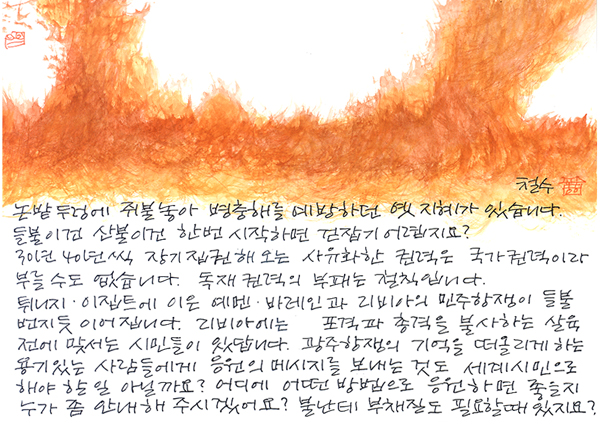 철수
논밭두렁에 쥐불놓아 병충해를 예방하던 옛 지혜가 있습니다.
들불이건 산불이건 한번 시작하면 걷잡기 어렵지요?
30년 40년씩 장기집권해 오는 사유화한 권력은 국가권력이라
부를 수도 없습니다. 독재 권력의 부패는 철칙입니다.
튀니지·이집트에 이은 예멘·바레인과 리비아의 민주항쟁이 들불
번지듯 이어집니다. 리비아에는 포격과 총격을 불사하는 살육
전에 맞서는 시민들이 있답니다. 광주항쟁의 기억을 떠올리게 하는
용기있는 사람들에게 응원의 메시지를 보내는 것도 세계시민으로
해야 할 일 아닐까요? 어디에 어떤 방법으로 응원하면 좋을지
누가 좀 안내해 주시겠어요? 불난데 부채질도 필요할때 있지요?